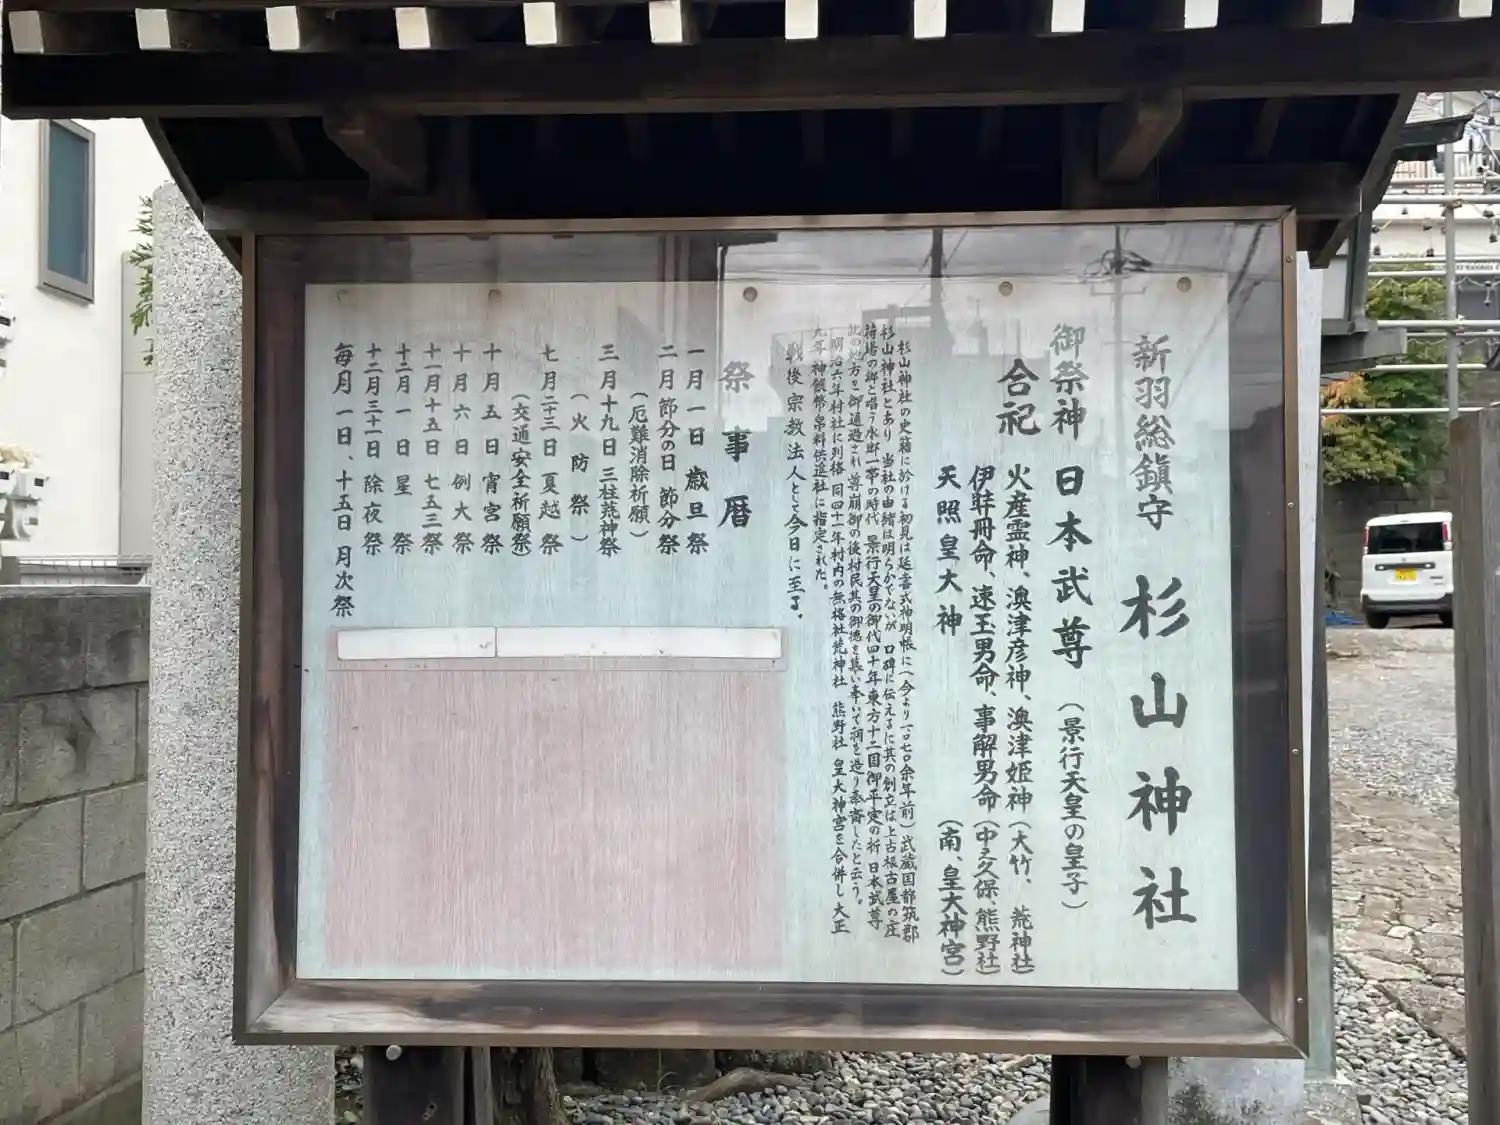 新羽総鎮守 杉山神社
御祭神 日本武尊(景行天皇の皇子)
合祀 火産霊神、澳津彦神、澳津姫神(大竹、荒神社)
伊弉冊命、速玉男命、事解男命(中之久保、熊野社)
天照皇大神(南、皇大神宮)
杉山神社の史籍に於ける初見は延喜式神明帳に(今より一〇七〇余年前)武蔵国都筑郡
杉山神社とあり 当社の由緒は明らかでないが 口碑に伝えるに其の創立は上古根古屋の庄
篠場の郷と唱う水郷一帯の時代 景行天皇の御代四十年東方十二国御平定の折 日本武尊
此の地方を御通過され尊崩御の後村民其の御徳を慕い奉いて祠を造り奉斎したと云う。
明治六年村社に列格 同四十一年村内の無格社荒神社 熊野社 皇大神宮を合併し大正
九年神饌幣帛料供進社に指定された。
戦後宗教法人として今日に至る。
祭事暦
一月一日 歳旦祭
二月節分の日 節分祭
(厄難消除祈願)
三月十九日 三柱荒神祭
(火防祭)
七月二十三日 夏越祭
(交通安全祈願祭)
十月五日 宵宮祭
十月六日 例大祭
十一月十五日 七五三祭
十二月一日 星祭
十二月三十一日 除夜祭
毎月一日、十五日 月次祭